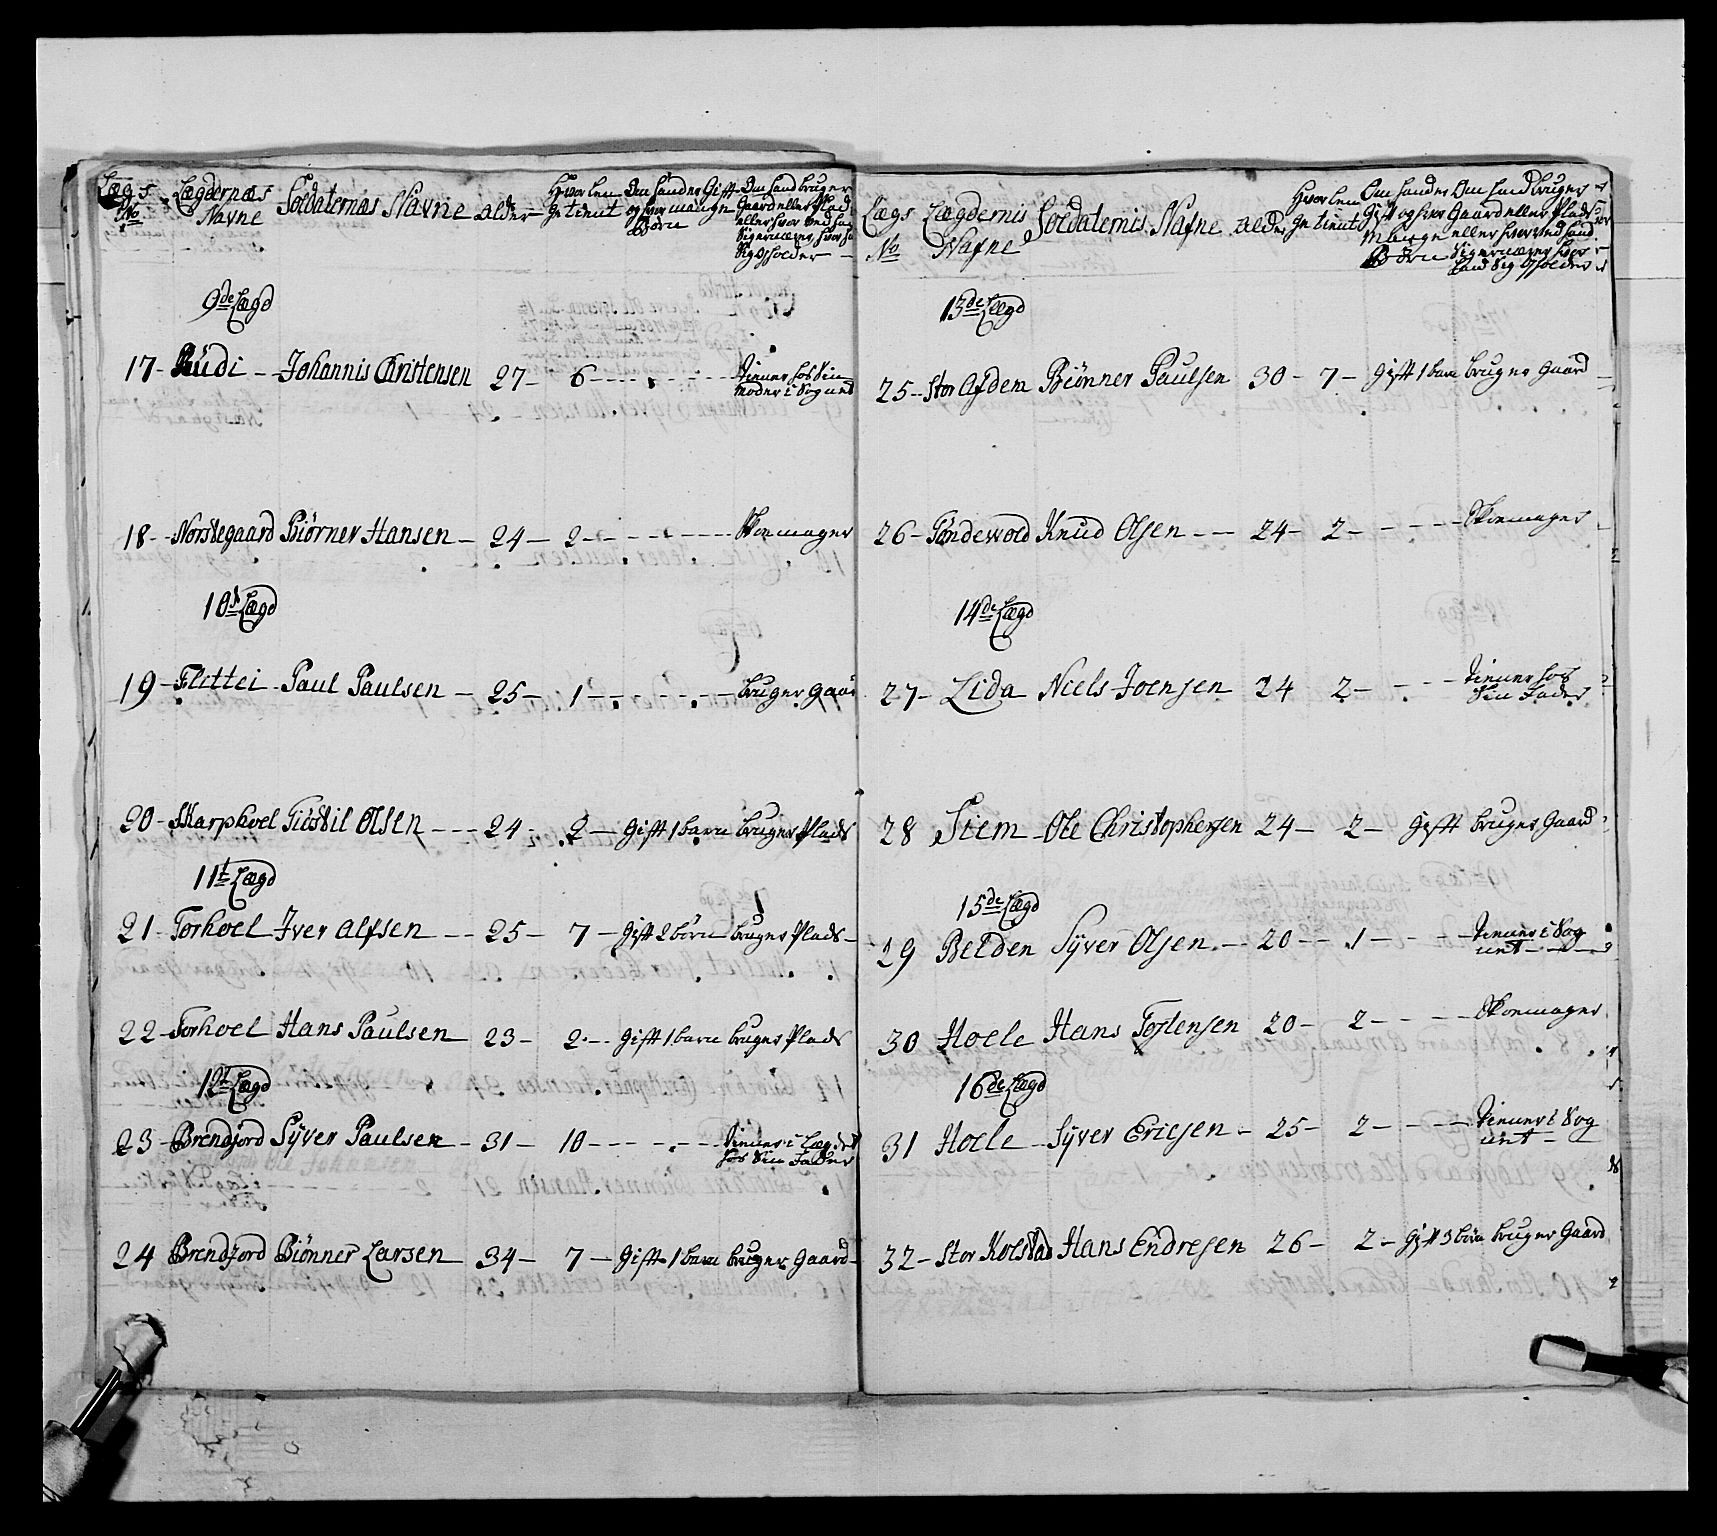 Lægs No
Lægdernæs Navne
Soldaternas Navne
Alder
Hvor len ge tient
Om hand er Gift og hvor mange Børn
Om hand bruger Gaard eller Plads eller hvor ved hand Sig ernærer, hvor Sig opholder
9de Lægd
17 - Rudi - - Johannis Christensen 27 - 6 - - - - tienner hos Sin Moder i Sognet
18 - Norstegaard Biörner Hansen - 24 - 2 - - - - Skoemager
10d Lægd
19 - Flittei - Paul Paulsen - 25 - 1 - - - - bruger Gaar
20 - Skarphoel Tiöstil Olsen - - - 24 - 2 - Gift 1 barn bruger Plads
11t Lægd
21 - Torhoel Iver Alfsen - - 25 - 7 - Gift 2 börn bruger Plads -
22 - Torhoel Hans Paulsen - 23 - 2 - - Gift 1 barn bruger Plads
12t Lægd
23 - Brendjord Syver Paulsen - 31 - 10 - - - - tienner i Lægdet hos Sin Fader
24 Brendjord Biönner Larsen - 34 - 7 - Gift 1 barn bruger Gaard -
Lægs No
Lægdernis Nafne
Soldaternis Nafne
Alder
Hvor len ge tient
Om hand er Gift og hvor Mange Börn
Om hand bruger Gaard eller Plads eller hvor ved hand Sig ernærer hvor hand Sig opholder
13de Lægd
25 - Stor Opdem Biönner Paulsen 30 - 7 - Gift 1 barn bruger Gaard
26 - Töndewold Knud Olsen - - - 24 - 2 - - - - Skoemager
14de Lægd
27 - Lida Niels Joensen 24 2 - - - - tienner hos Sin Fader
28 Siem - Ole Christophersen 24 - 2 - Gift bruger Gaard
15de Lægd
29 Belden Syver Olsen - - 20 - - 1 - - - tienner i Sog net - - -
30 Hoele Hans Tostensen 20 - 2 - - - Skoemager
16de Lægd
31 Hoele - Syver Ericsen - 25 - 2 - - - tienner i Sog net -
32 - Stor Kolstad Hans Endresen 26 - 2 - Gift 3 börn bruger Gaard